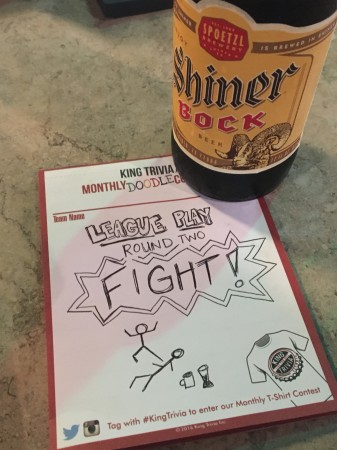 SPOETZL
BREWERY
Shiner
BOCK
BEER
KING TRIVIA
MONTHLY DOODLE
Team Name
LEAGUE PLAY
ROUND TWO
FIGHT!
KING
TRIVIA
Tag with #KingTrivia to enter our Monthly T-Shirt Contest
© 2016 King Trivia, Inc.